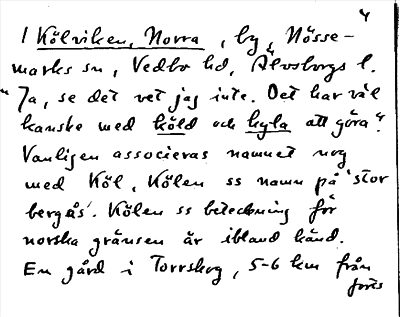 4
1 Kölviken, Norra, by, Nösse-
marks sn, Vedbo hd, Älvsborgs l.
"Ja, se det vet jag inte. Det har väl
kanske med köld och kyla att göra".
Vanligen associeras namnet nog
med Köl, Kölen ss namn på 'stor
bergås'. Kölen ss beteckning för
norska gränsen är ibland känd.
En gård i Torrskog, 5-6 km från
forts